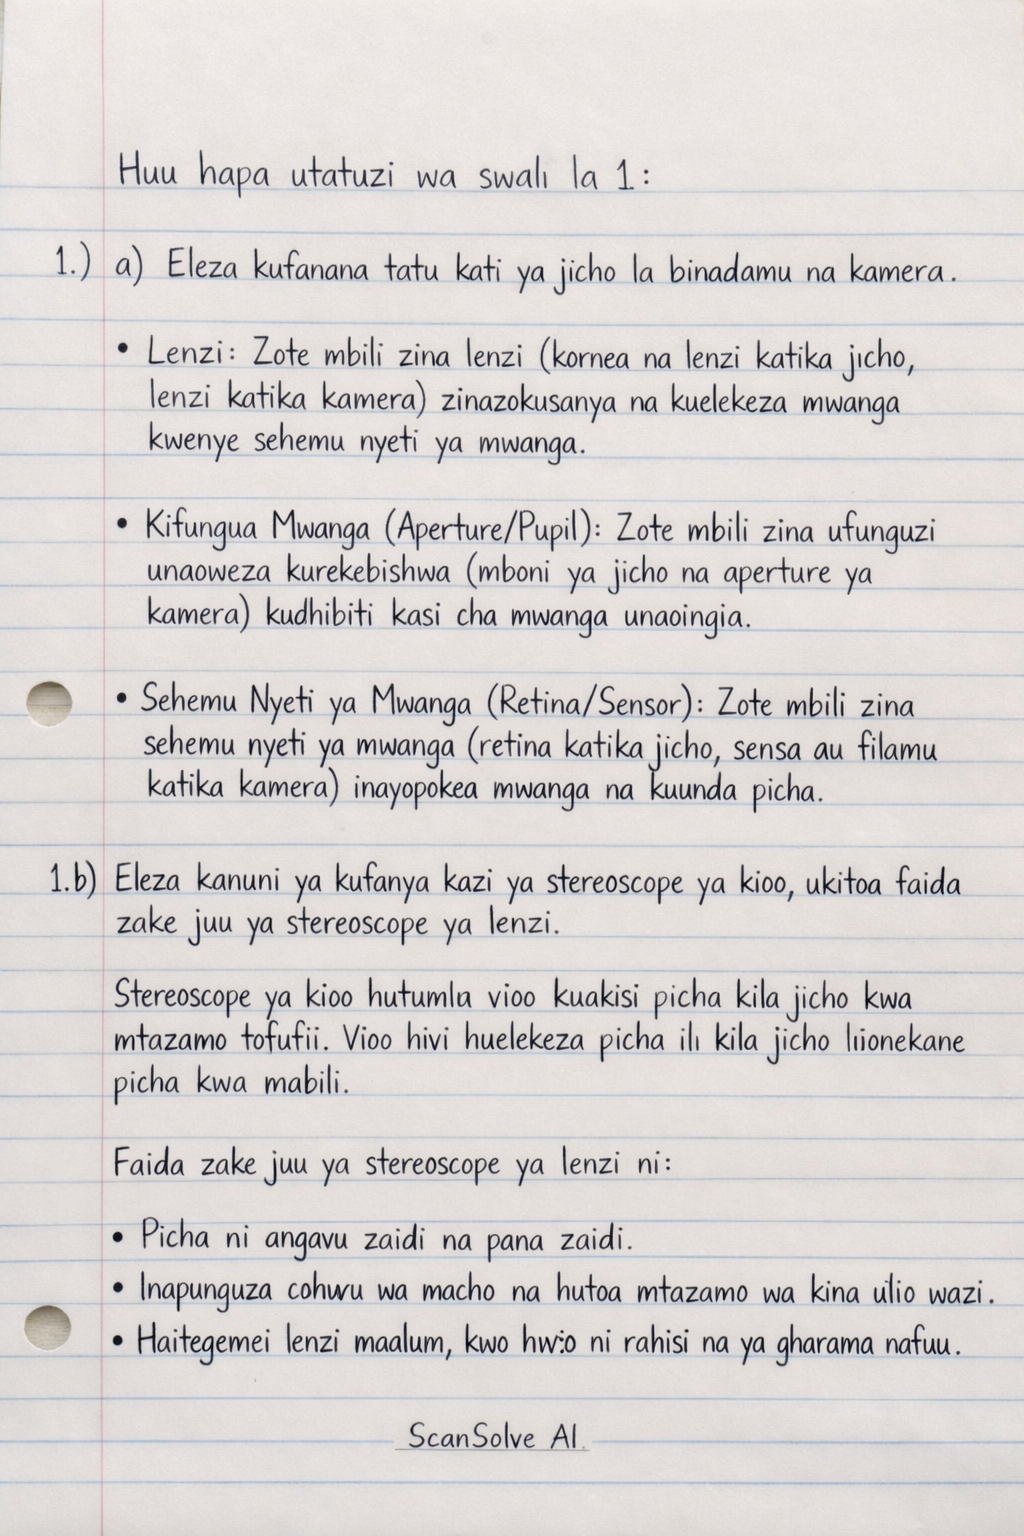 Huu hapa utatuzi wa swalı la 1:
1.) a) Eleza kufanana tatu kati ya jicho la binadamu na kamera.
• Lenzi: Zote mbili zina lenzi (kornea na lenzi katika jıcho,
lenzi katika kamera) zinazokusanya na kuelekeza mwanga
kwenye sehemu nyeti ya mwanga.
• Kifungua Mwanga (Aperture/Pupil): Zote mbili zina ufunguzi
unaoweza kurekebishwa (mboni ya jicho na aperture ya
kamera) kudhibiti kasi cha mwanga unaoingia.
• Sehemu Nyeti ya Mwanga (Retina/Sensor): Zote mbili zina
sehemu nyeti ya mwanga (retina katika jicho, sensa au filamu
katika kamera) inayopokea mwanga na kuunda picha.
1.b) Eleza kanuni ya kufanya kazi ya stereoscope ya kioo, ukitoa faida
zake juu ya stereoscope ya lenzi.
Stereoscope ya kioo hutumla vioo kuakisi picha kila jicho kwa
mtazamo tofufii. Vioo hivi huelekeza picha ilı kila jicho liionekane
picha kwa mabili.
Faida zake juu ya stereoscope ya lenzi ni:
• Picha ni angavu zaidi na pana zaidi.
• Inapunguza wa macho na hutoa mtazamo wa kina ulio wazi.
• Haitegemei lenzi maalum, kwo ni rahisi na ya gharama nafuu.
ScanSolve AI.